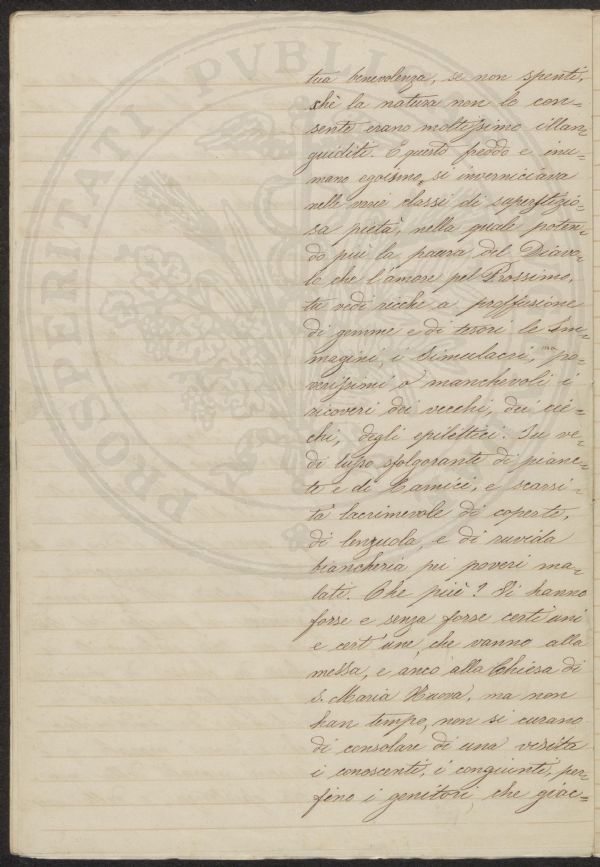 tua benevolenza, se non spenti,
chè la natura non lo con=
sente erano moltissimo illan=
guiditi. E questo freddo e inu=
mano egoismo, si inverniciava
nelle varie classi di superstizio=
sa pietà, nella quale poten=
do più la paura del Diavo=
lo che l'amore pel Prossimo,
tu vedi ricche a proffusione
di gemme e di tesori le Im=
magini, i Simulacri, ma po=
verissimi o manchevoli i
ricoveri dei vecchi, dei cie=
chi, degli epilettici. Tu ve=
di lusso sfolgorante di piane=
te e di Camici, e scarsi=
tà lacrimevole di coperte,
di lenzuola, e di ruvida
biancheria pei poveri ma=
lati. Che più? Vi hanno
forse e senza forse cert'uni
e cert'une, che vanno alla
messa, e anco alla Chiesa di
S. Maria Nuova, ma non
han tempo, non si curano
di consolare di una visita
i conoscenti, i congiunti, per=
fino i genitori, che giac=
PROSPERITATI PVBLICAE